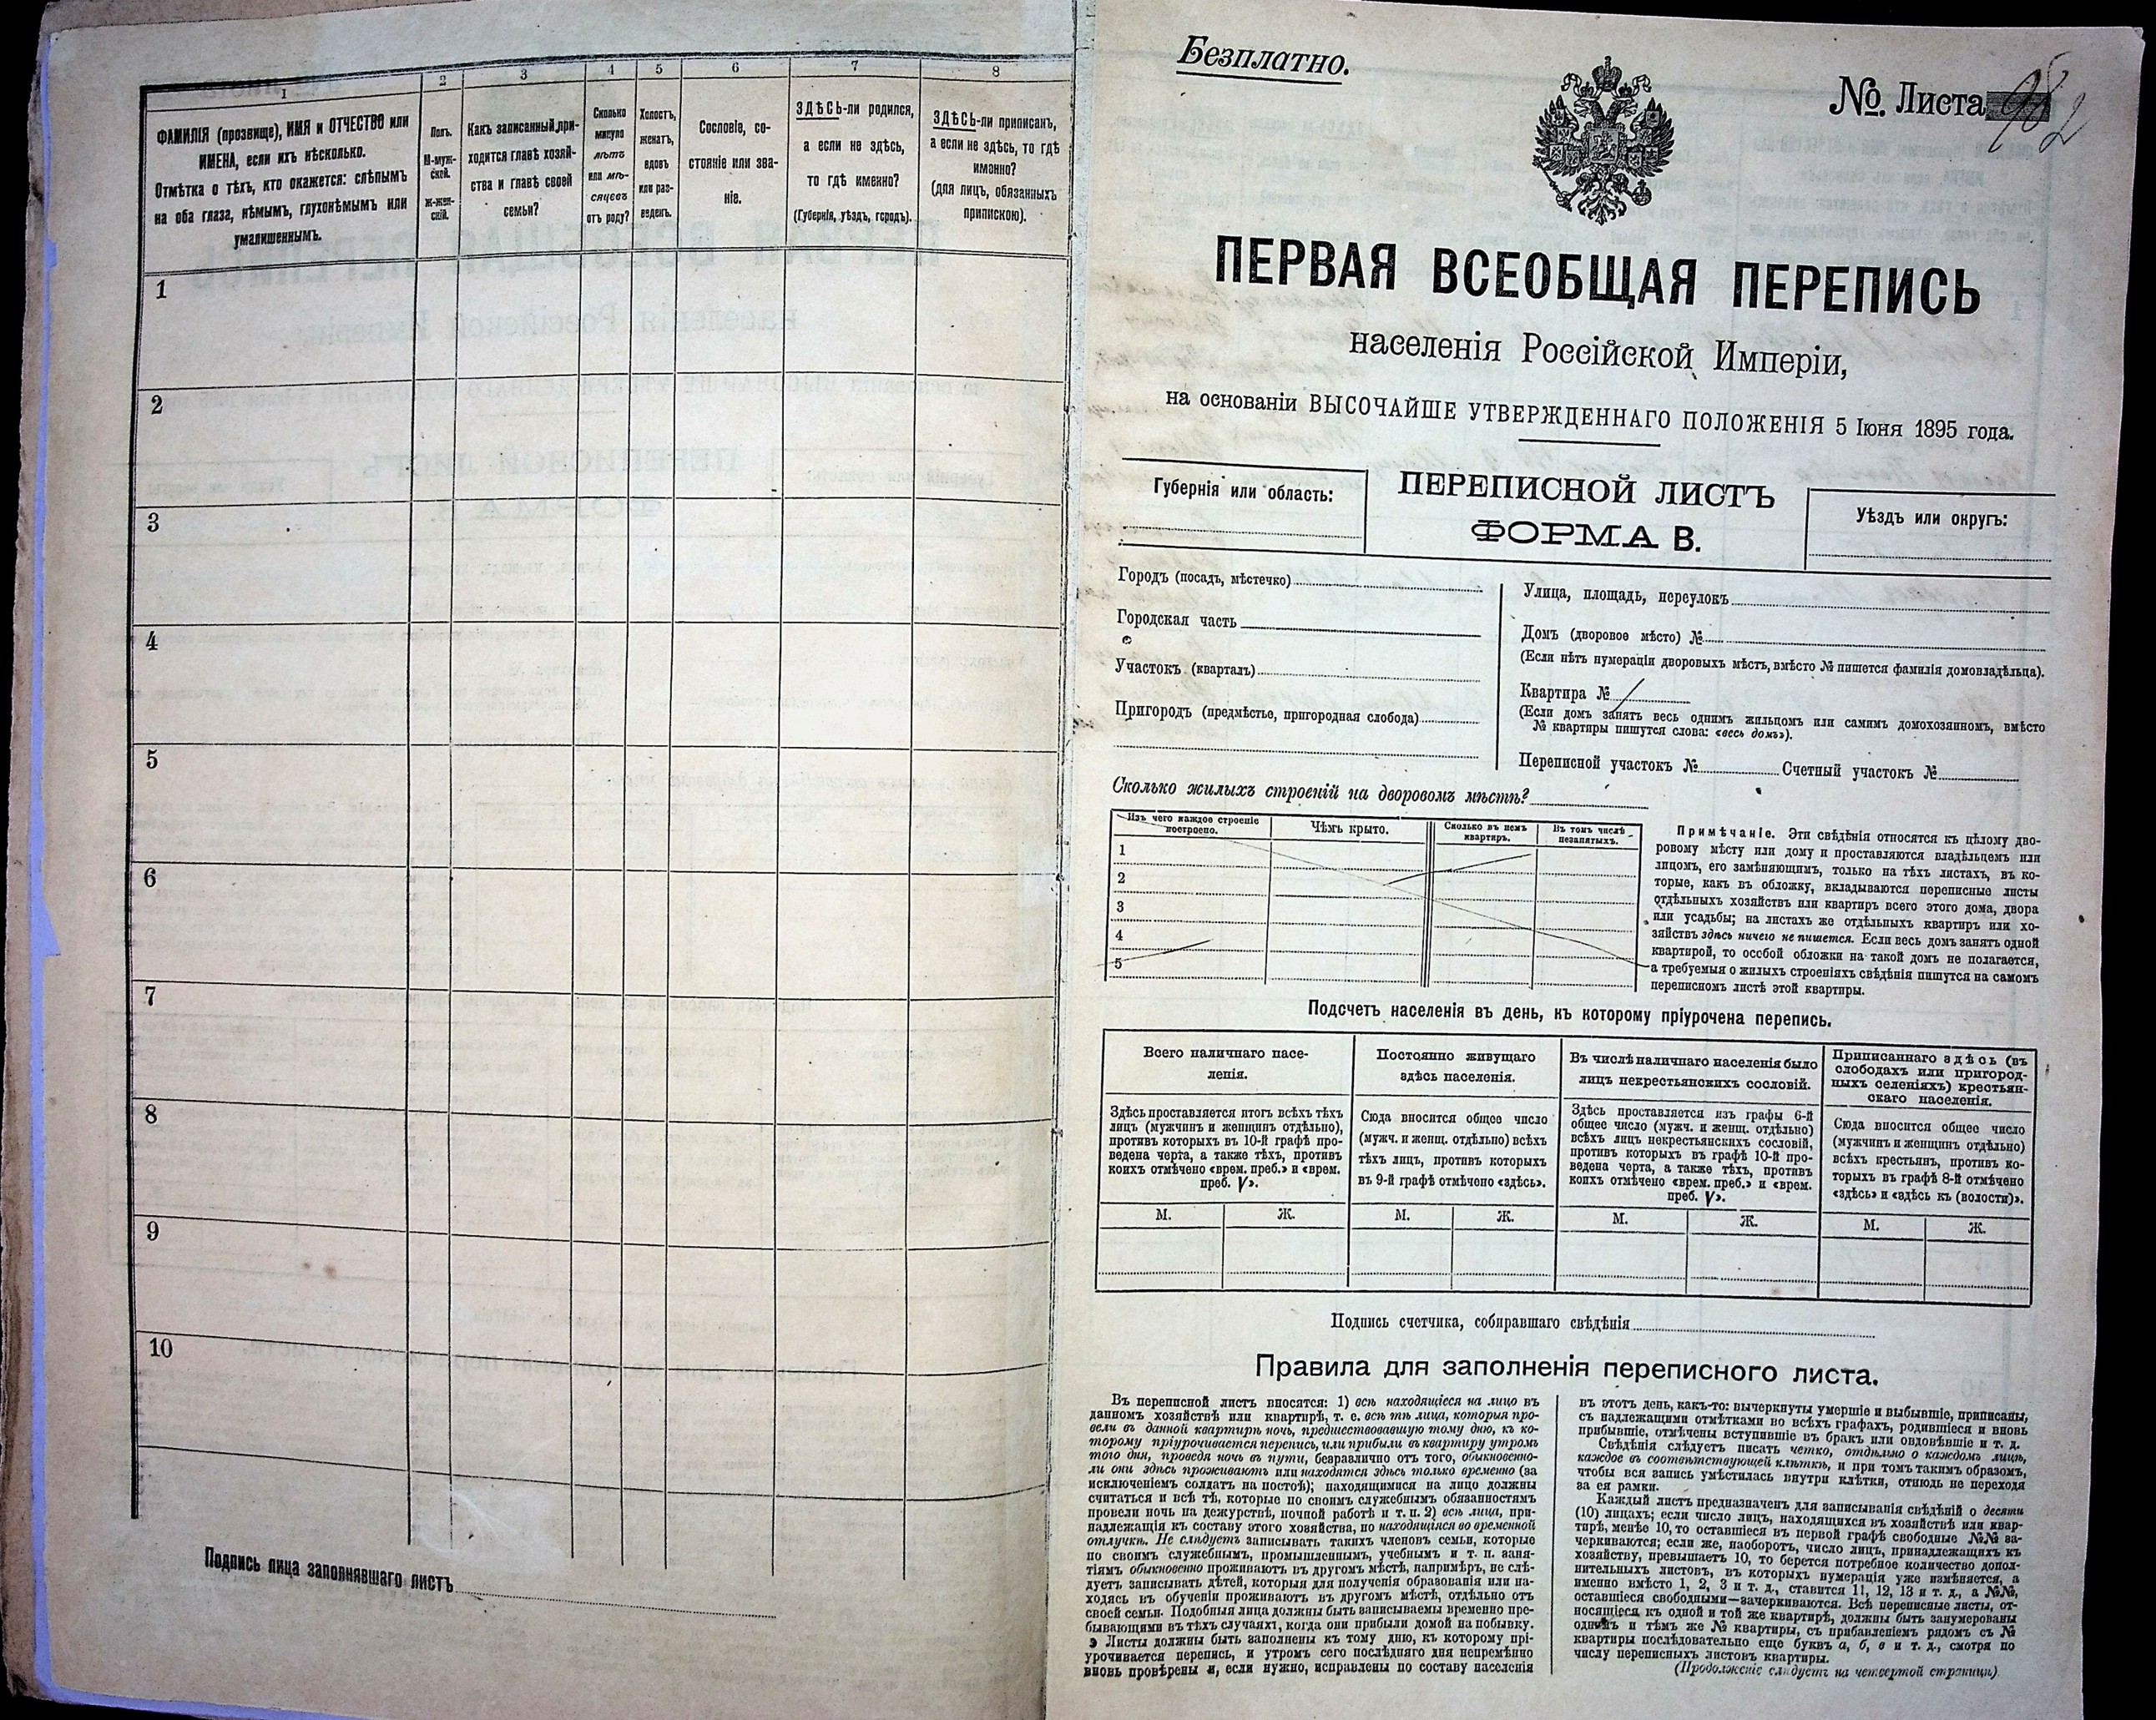 1 2 3 4 5 6 7 8
ФАМИЛІЯ (прозвище), ИМЯ и ОТЧЕСТВО или
ИМЕНА, если ихъ нѣсколько.
Отмѣтка о тѣхъ, кто окажется: слѣпымъ
на оба глаза, нѣмымъ, глухонѣмымъ или
умалишеннымъ.
Полъ.
М-муж-
ской.
Ж-жен-
скій.
Какъ записанный, при-
ходится главѣ хозяй-
ства и главѣ своей
семьи?
Сколько
минуло
лѣтъ
или мѣ-
сяцевъ
отъ роду?
Холостъ,
женатъ,
вдовъ
или раз-
веденъ.
Сословіе, со-
стояніе или зва-
ніе.
ЗДѢСЬ-ли родился,
а если не здѣсь,
то гдѣ именно?
(Губернія, уѣздъ, городъ).
ЗДѢСЬ-ли приписанъ,
а если не здѣсь, то гдѣ
именно?
(для лицъ, обязанныхъ
припискою).
1
2
3
4
5
6
7
8
9
10
Подпись лица заполнявшаго листъ
Безплатно.
№ Листа 982
ПЕРВАЯ ВСЕОБЩАЯ ПЕРЕПИСЬ
населенія Россійской Имперіи,
на основаніи ВЫСОЧАЙШЕ УТВЕРЖДЕННАГО ПОЛОЖЕНІЯ 5 Іюня 1895 года.
Губернія или область:
ПЕРЕПИСНОЙ ЛИСТЪ
ФОРМА В.
Уѣздъ или округъ:
Городъ (посадъ, мѣстечко)
Городская часть
Участокъ (кварталъ)
Пригородъ (предмѣстье, пригородная слобода)
Улица, площадь, переулокъ
Домъ (дворовое мѣсто) №
(Если нѣтъ нумераціи дворовыхъ мѣстъ, вмѣсто № пишется фамилія домовладѣльца).
Квартира №
(Если домъ занятъ весь однимъ жильцомъ или самимъ домохозяиномъ, вмѣсто
№ квартиры пишутся слова: «весь домъ»).
Переписной участокъ № Счетный участокъ №
Сколько жилыхъ строеній на дворовомъ мѣстѣ?
Изъ чего каждое строеніе
построено.
Чѣмъ крыто.
Сколько въ немъ
квартиръ.
Въ томъ числѣ
незанятыхъ.
1
2
3
4
5
Примѣчаніе. Эти свѣдѣнія относятся къ цѣлому дво-
ровому мѣсту или дому и проставляются владѣльцемъ или
лицомъ, его замѣняющимъ, только на тѣхъ листахъ, въ ко-
торые, какъ въ обложку, вкладываются переписные листы
отдѣльныхъ хозяйствъ или квартиръ всего этого дома, двора
или усадьбы; на листахъ же отдѣльныхъ квартиръ или хо-
зяйствъ здѣсь ничего не пишется. Если весь домъ занятъ одной
квартирой, то особой обложки на такой домъ не полагается,
а требуемыя о жилыхъ строеніяхъ свѣдѣнія пишутся на самомъ
переписномъ листѣ этой квартиры.
Подсчетъ населенія въ день, къ которому пріурочена перепись.
Всего наличнаго насе-
ленія.
Постоянно живущаго
здѣсь населенія.
Въ числѣ наличнаго населенія было
лицъ некрестьянскихъ сословій.
Приписаннаго здѣсь (въ
слободахъ или пригород-
ныхъ селеніяхъ) крестьян-
скаго населенія.
Здѣсь проставляется итогъ всѣхъ тѣхъ
лицъ (мужчинъ и женщинъ отдѣльно),
противъ которыхъ въ 10-й графѣ про-
ведена черта, а также тѣхъ, противъ
коихъ отмѣчено «врем. преб.» и «врем.
преб. V».
Сюда вносится общее число
(мужч. и женщ. отдѣльно) всѣхъ
тѣхъ лицъ, противъ которыхъ
въ 9-й графѣ отмѣчено «здѣсь».
Здѣсь проставляется изъ графы 6-й
общее число (мужч. и женщ. отдѣльно)
всѣхъ лицъ некрестьянскихъ сословій,
противъ которыхъ въ графѣ 10-й про-
ведена черта, а также тѣхъ, противъ
коихъ отмѣчено «врем. преб.» и «врем.
преб. V».
Сюда вносится общее число
(мужчинъ и женщинъ отдѣльно)
всѣхъ крестьянъ, противъ ко-
торыхъ въ графѣ 8-й отмѣчено
«здѣсь» и «здѣсь къ (волости)».
М. Ж. М. Ж. М. Ж. М. Ж.
Подпись счетчика, собиравшаго свѣдѣнія
Правила для заполненія переписного листа.
Въ переписной листъ вносятся: 1) всѣ находящіеся на лицо въ
данномъ хозяйствѣ или квартирѣ, т. е. всѣ тѣ лица, которыя про-
вели въ данной квартирѣ ночь, предшествовавшую тому дню, къ ко-
торому пріурочивается перепись, или прибыли въ квартиру утромъ
того дня, проведя ночь въ пути, безразлично отъ того, обыкновенно-
ли они здѣсь проживаютъ или находятся здѣсь только временно (за
исключеніемъ солдатъ на постоѣ); находящимися на лицо должны
считаться и всѣ тѣ, которые по своимъ служебнымъ обязанностямъ
провели ночь на дежурствѣ, ночной работѣ и т. п. 2) всѣ лица, при-
надлежащія къ составу этого хозяйства, но находящіяся во временной
отлучкѣ. Не слѣдуетъ записывать такихъ членовъ семьи, которые
по своимъ служебнымъ, промышленнымъ, учебнымъ и т. п. заня-
тіямъ обыкновенно проживаютъ въ другомъ мѣстѣ, напримѣръ, не слѣ-
дуетъ записывать дѣтей, которыя для полученія образованія или на-
ходясь въ обученіи проживаютъ въ другомъ мѣстѣ, отдѣльно отъ
своей семьи. Подобныя лица должны быть записываемы временно пре-
бывающими въ тѣхъ случаяхъ, когда они прибыли домой на побывку.
Листы должны быть заполнены къ тому дню, къ которому прі-
урочивается перепись, и утромъ сего послѣдняго дня непремѣнно
вновь провѣрены и, если нужно, исправлены по составу населенія
въ этотъ день, какъ-то: вычеркнуты умершіе и выбывшіе, приписаны,
съ надлежащими отмѣтками во всѣхъ графахъ, родившіеся и вновь
прибывшіе, отмѣчены вступившіе въ бракъ или овдовѣвшіе и т. д.
Свѣдѣнія слѣдуетъ писать четко, отдѣльно о каждомъ лицѣ,
каждое въ соотвѣтствующей клѣткѣ, и при томъ такимъ образомъ,
чтобы вся запись умѣстилась внутри клѣтки, отнюдь не переходя
за ея рамки.
Каждый листъ предназначенъ для записыванія свѣдѣній о десяти
(10) лицахъ; если число лицъ, находящихся въ хозяйствѣ или квар-
тирѣ, менѣе 10, то оставшіеся въ первой графѣ свободные №№ за-
черкиваются; если же, наоборотъ, число лицъ, принадлежащихъ къ
хозяйству, превышаетъ 10, то берется потребное количество допол-
нительныхъ листовъ, въ которыхъ нумерація уже измѣняется, а
именно вмѣсто 1, 2, 3 и т. д., ставится 11, 12, 13 и т. д., а №№,
оставшіеся свободными—зачеркиваются. Всѣ переписные листы, от-
носящіеся къ одной и той же квартирѣ, должны быть занумерованы
однимъ и тѣмъ же № квартиры, съ прибавленіемъ рядомъ съ №
квартиры послѣдовательно еще буквъ а, б, в и т. д., смотря по
числу переписныхъ листовъ квартиры.
(Продолженіе слѣдуетъ на четвертой страницѣ).